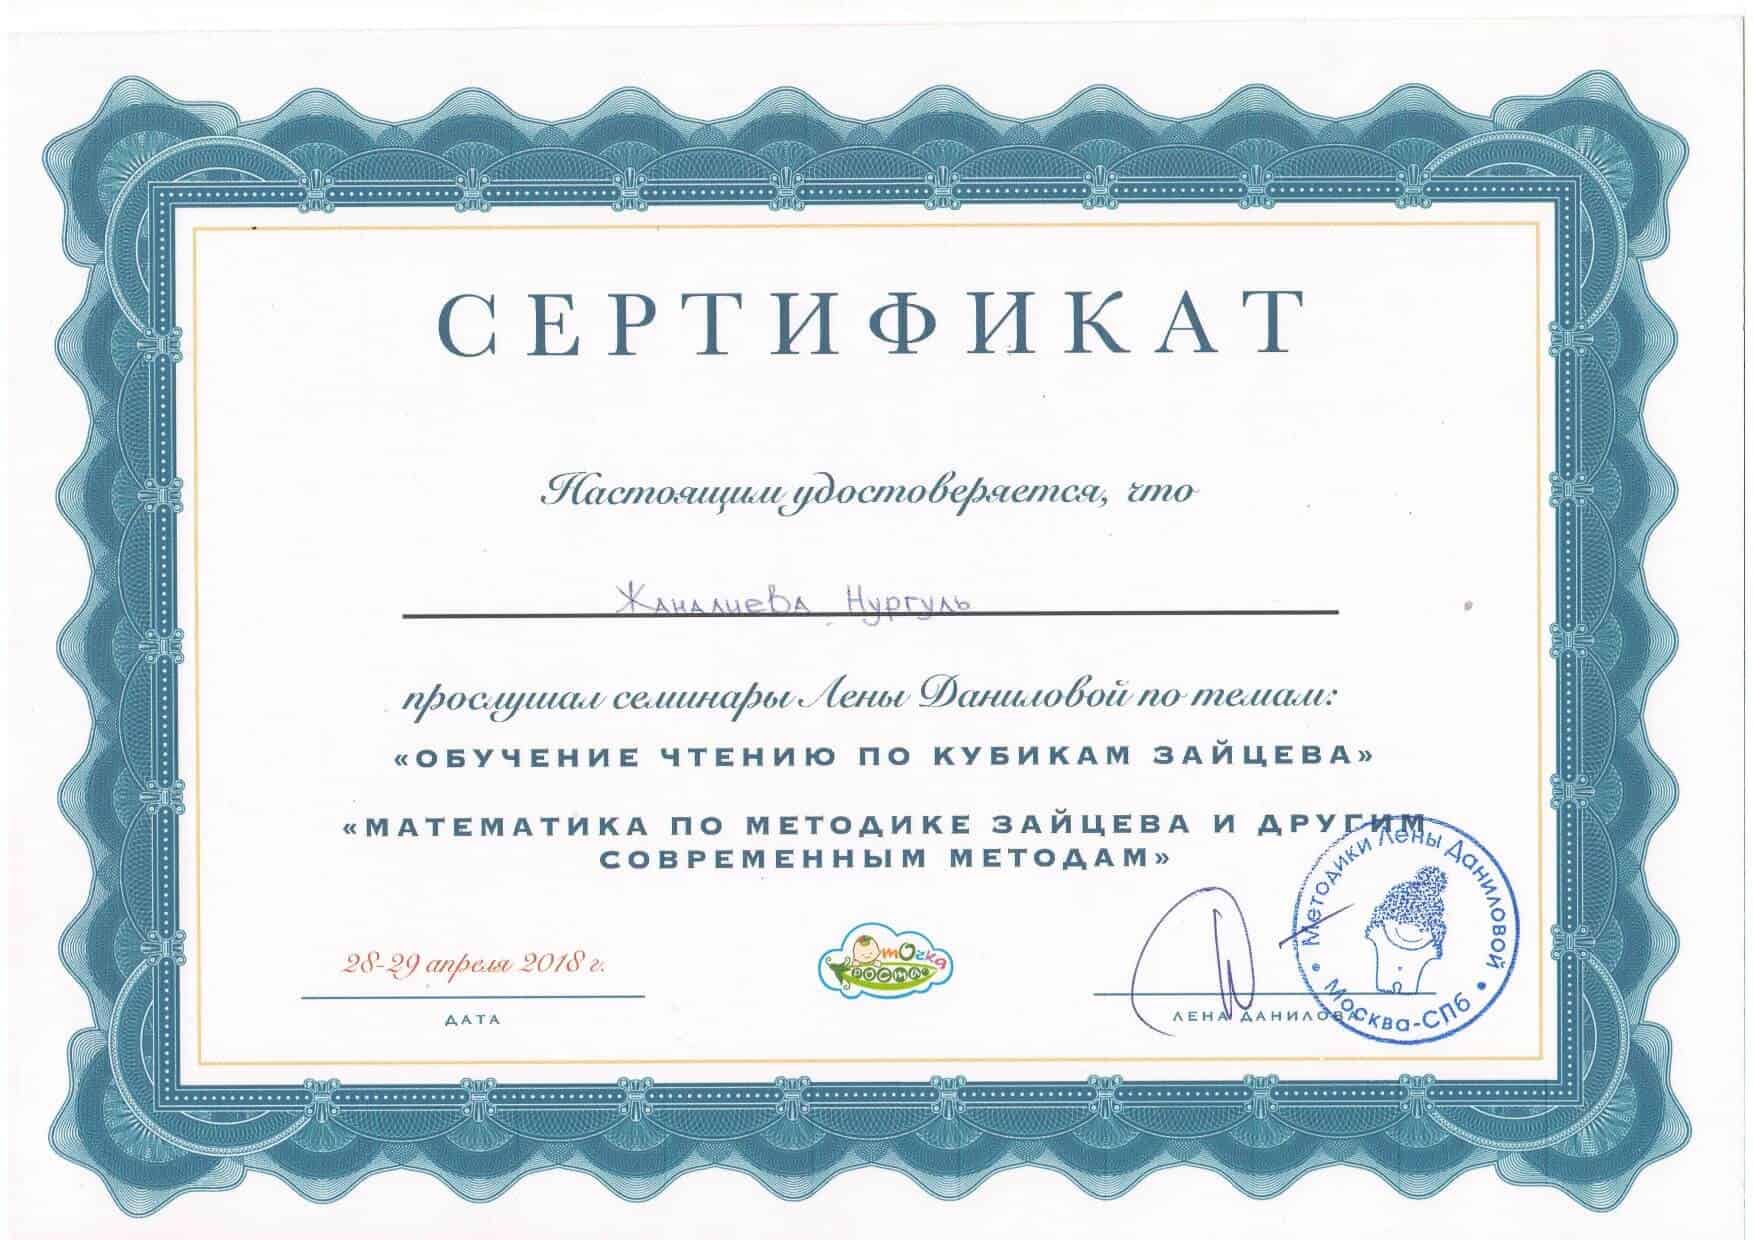 СЕРТИФИКАТ
Настоящим удостоверяется, что
Жаналиева Нургуль
прослушал семинары Лены Даниловой по темам:
«ОБУЧЕНИЕ ЧТЕНИЮ ПО КУБИКАМ ЗАЙЦЕВА»
«МАТЕМАТИКА ПО МЕТОДИКЕ ЗАЙЦЕВА И ДРУГИМ
СОВРЕМЕННЫМ МЕТОДАМ»
28-29 апреля 2018 г.
ДАТА
тОчка
РОСТА
ЛЕНА ДАНИЛОВА
Методики Лены Даниловой
Москва-СПб